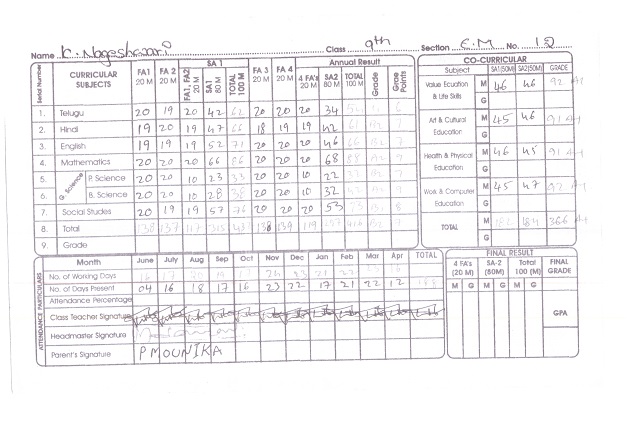 Name K. Nageshwari Class 9th Section E.M No. 12
Serial Number CURRICULAR SUBJECTS FA1 20 M FA 2 20 M SA 1 FA1, FA2 20 M SA1 80 M TOTAL 100 M FA 3 20 M FA 4 20 M Annual Result 4 FA's 20 M SA2 80 M TOTAL 100 M Grade Grade Points
1. Telugu 20 19 20 42 62 20 20 20 34
2. Hindi 19 20 19 47 66 18 19 19 42
3. English 19 19 19 52 71 20 20 20 46
4. Mathematics 20 20 20 66 86 20 20 20 68
G. Science
5. P. Science 20 20 10 23 33 20 20 10 22
6. B. Science 20 20 10 28 38 20 20 10 32
7. Social Studies 20 19 19 57 76 20 20 20 53
8. Total 138 137 117 315 138 139 119
9. Grade
CO-CURRICULAR
Subject SA1(50M) SA2(50M) GRADE
Value Ecuation & Life Skills M 46 46 92 A1
G
Art & Cultural Education M 45 46 91 A1
G
Health & Physical Education M 46 45 91 A1
G
Work & Computer Education M 45 47 92 A1
G
TOTAL M 182 184 366 A1
G
ATTENDANCE PARTICULARS
Month June July Aug Sep Oct Nov Dec Jan Feb Mar Apr TOTAL
No. of Working Days
No. of Days Present 04 16 18 17 16 23 22 17 21 22 12
Attendance Percentage
Class Teacher Signature
Headmaster Signature
Parent's Signature P MOUNIKA
FINAL RESULT
4 FA's (20 M) SA-2 (80M) Total 100 (M) FINAL GRADE
M G M G M G
GPA